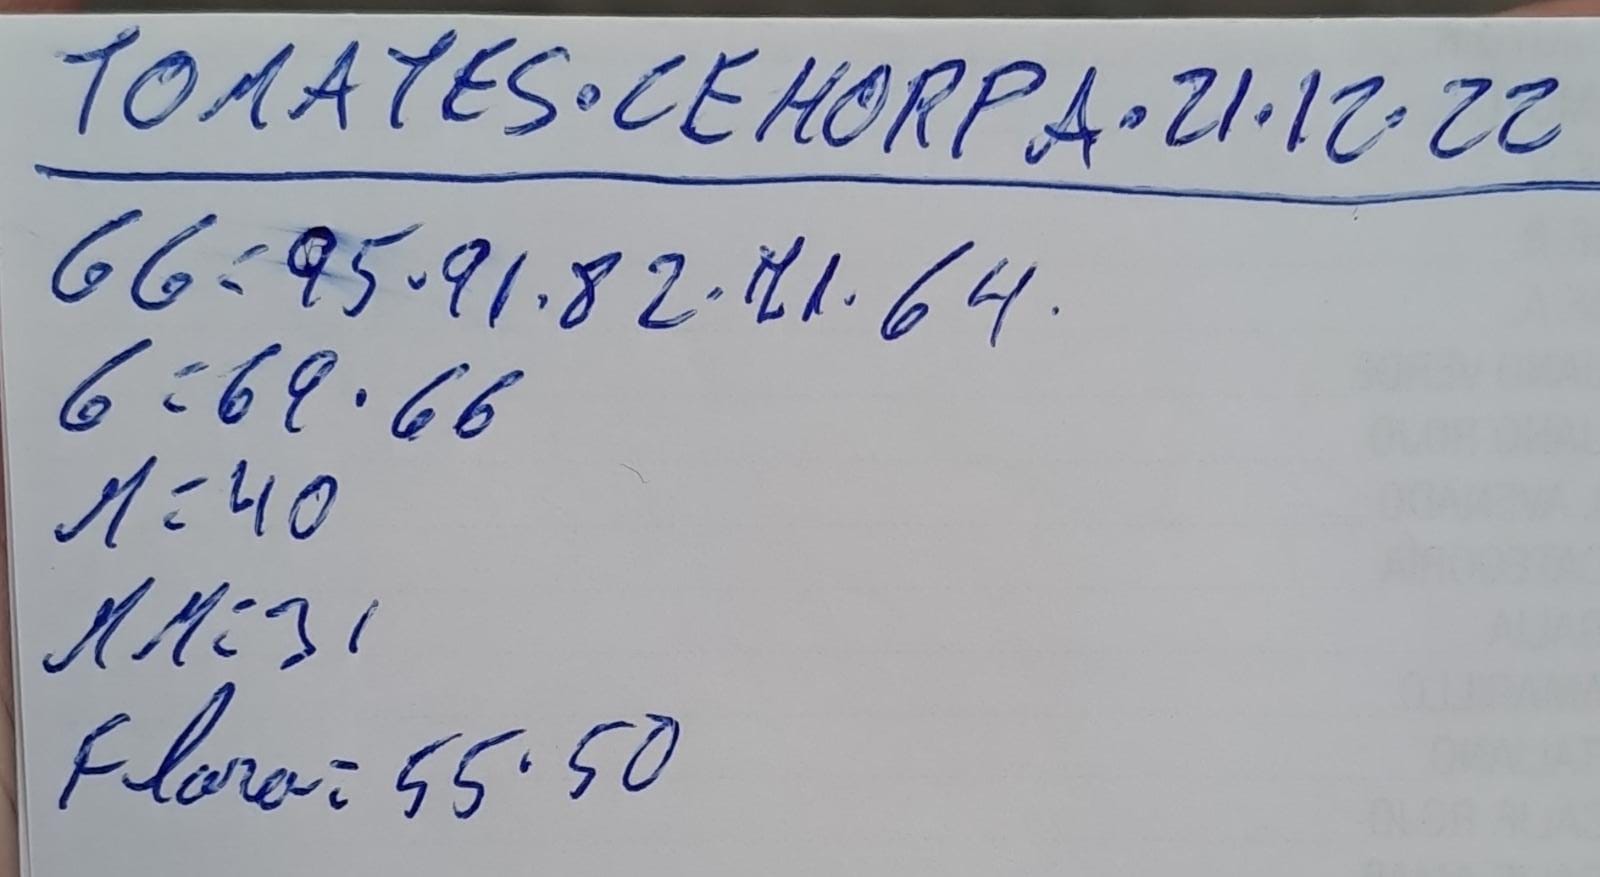 TOMATES·CEHORPA·21·12·22
GG=95·91·82·71·64.
G=69·66
M=40
MM=31
Flora=55·50